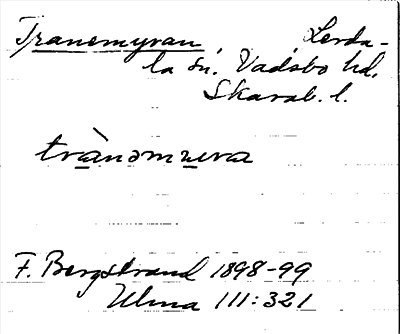 Tranemyran Lerda-
la sn. Vadsbo hd.
Skarab. l.
trànəmyra
F. Bergstrand 1898-99
Ulma 111:321